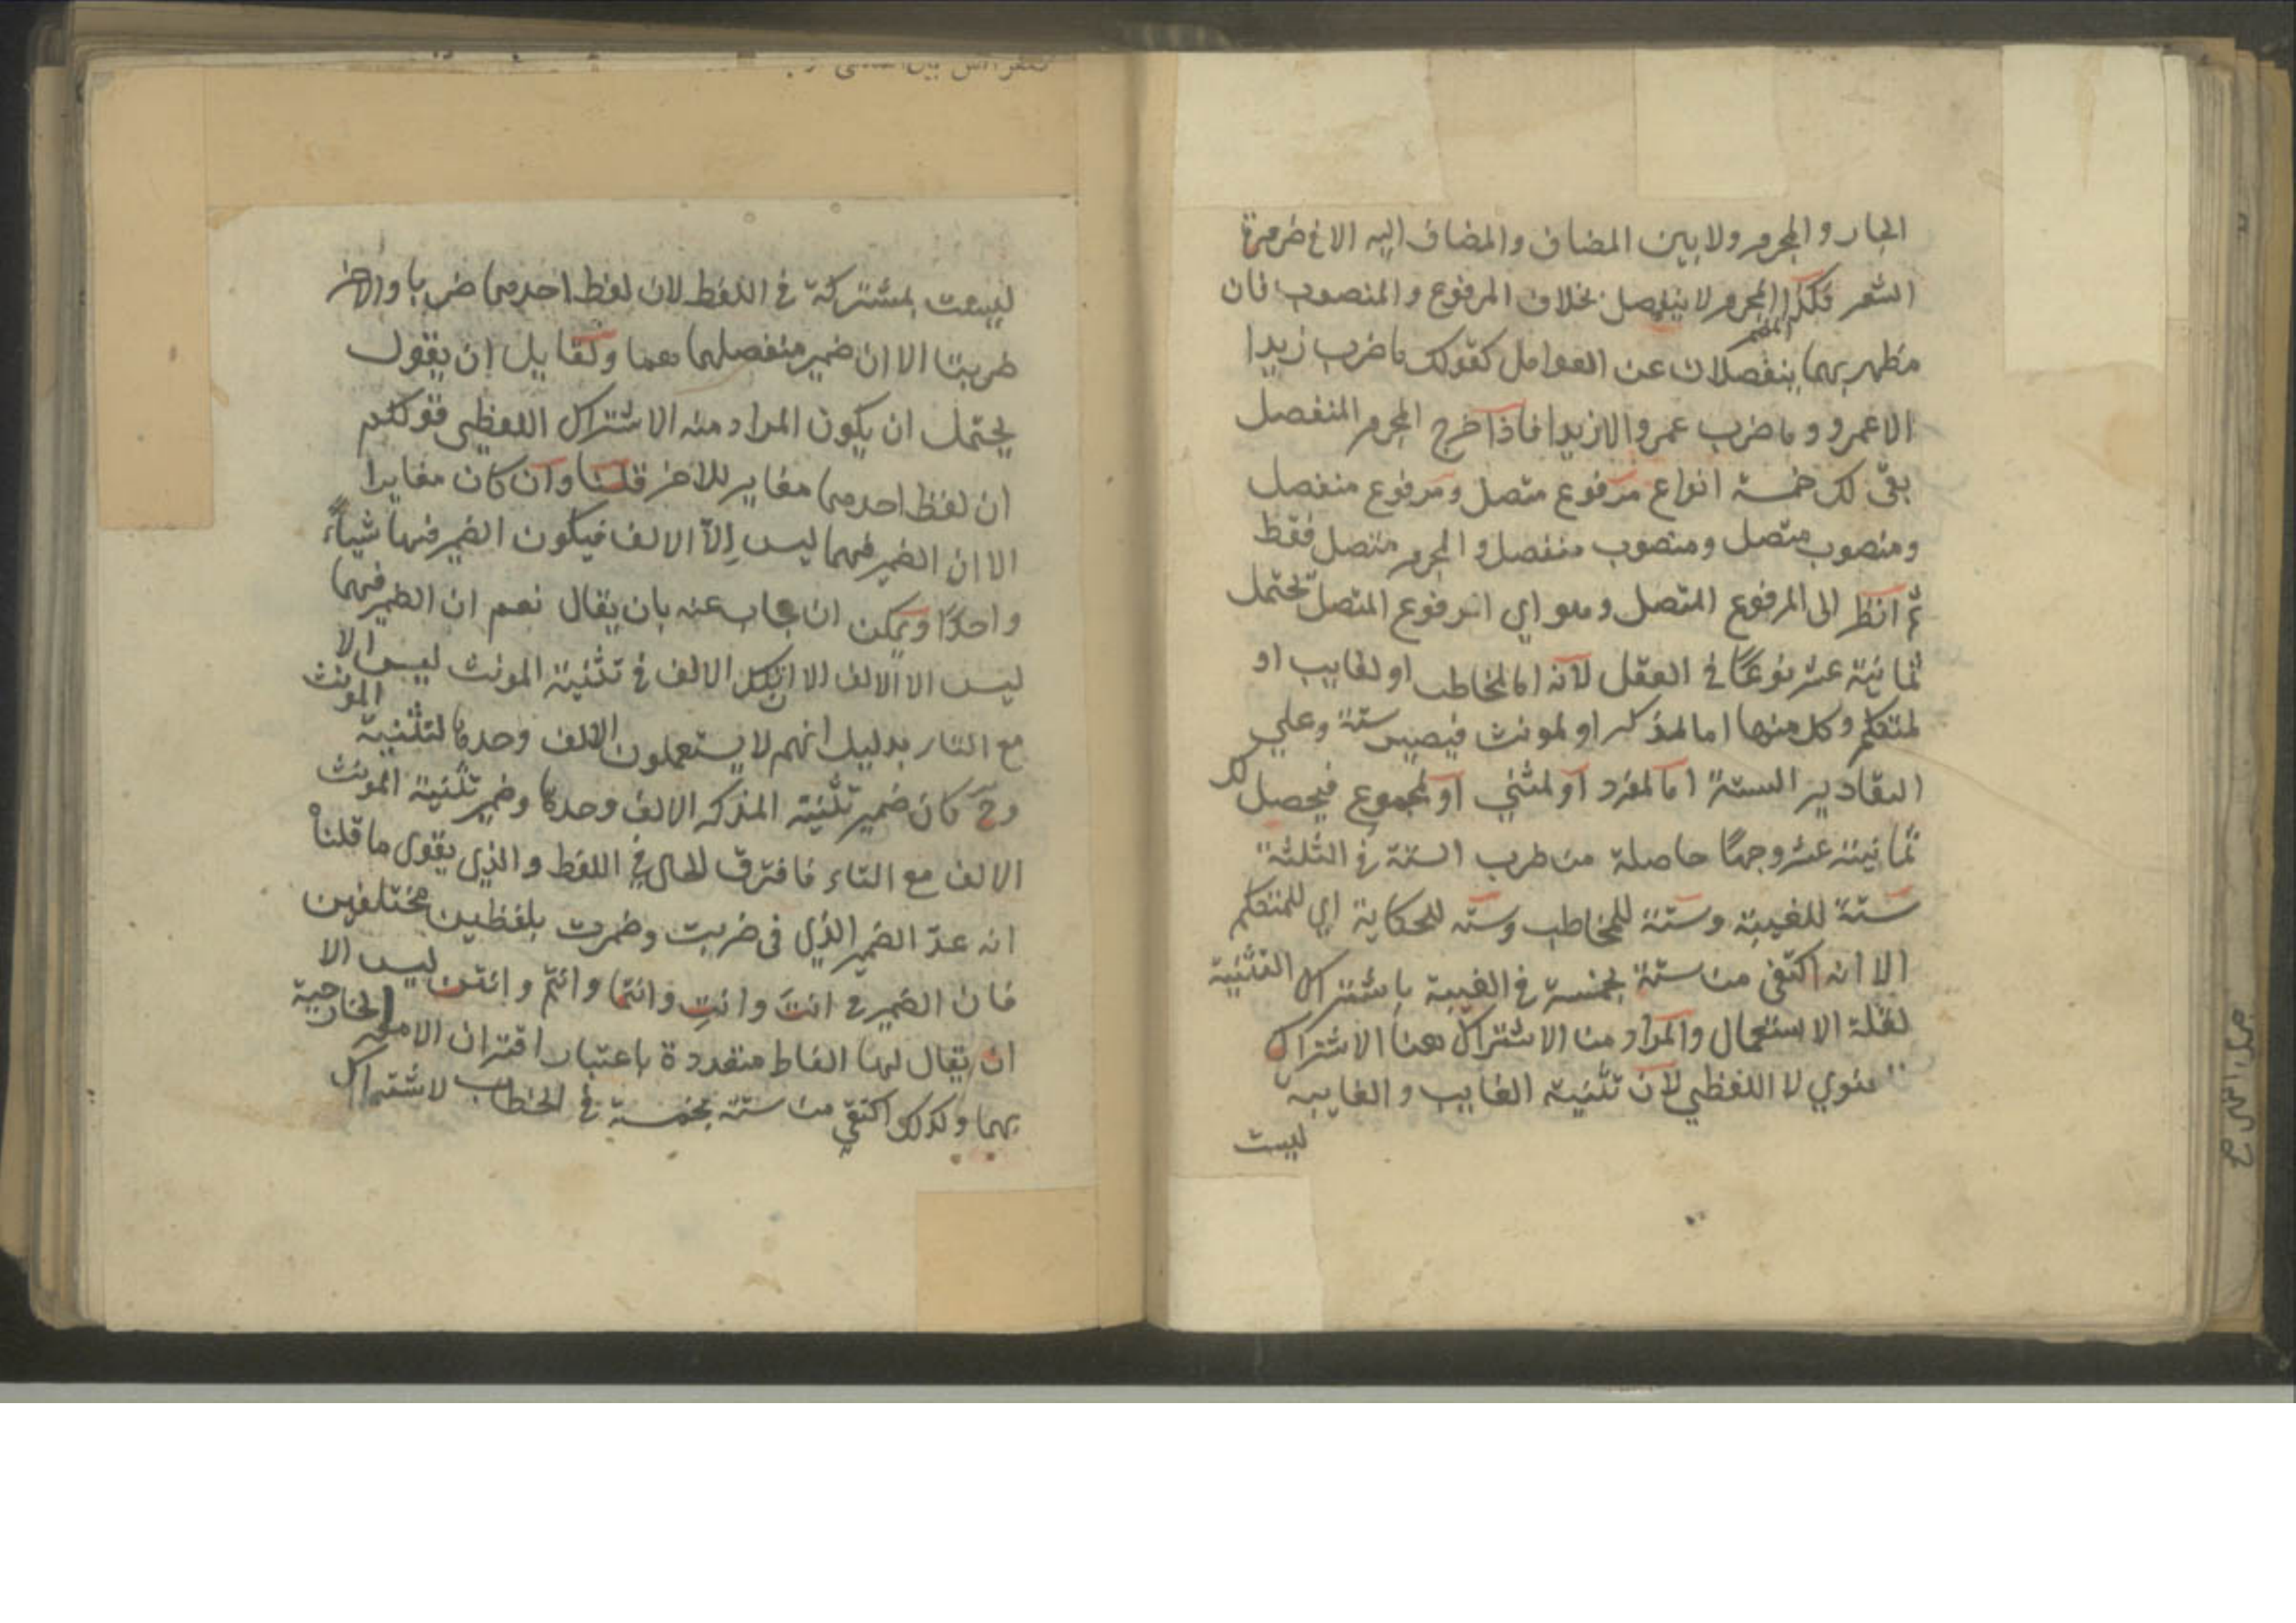 الجار والمجرور ولا بين المضاف والمضاف اليه الا فى ضرورة
الشعر فكذا المجرور لا ينفصل بخلاف المرفوع والمنصوب فان
المضمر
مظهريهما ينفصلان عن العوامل كقولك ما ضرب زيدا
الا عمرو وما ضرب عمرو الا زيدا فاذا خرج المجرور المنفصل
بقى لك خمسة انواع مرفوع متصل ومرفوع منفصل
ومنصوب متصل ومنصوب منفصل والمجرور متصل فقط
ثم انظر الى المرفوع المتصل وهو اي المرفوع المتصل تحتمل
ثمانية عشر نوعًا في العقل لانه اما لمخاطب او لغايب او
لمتكلم وكل منها اما لمذكر او لمونث فيصير ستة وعلي
التقادير الستة اما لمفرد او لمثني او لمجموع فيحصل لك
ثمانية عشر وجهًا حاصلة من ضرب الستة في الثلثة
ستة للغيبة وستة للمخاطب وستة للحكاية اي للمتكلم
الا انه اكتفى من ستة بخمسة في الغيبة باشتراك التثنية
لقلة الاستعمال والمراد من الاشتراك هنا الاشتراك
معنوي لا اللفظي لان تثنية الغايب والغايبة
ليست
ليست بمشتركة في اللفظ لان لفظ احدهما ضربا والاخر
ضربتا الا ان ضمير منفصلهما هما ولقايل ان يقول
يحتمل ان يكون المراد منه الاشتراك اللفظي فقولكم
ان لفظ احدهما مغاير للاخر قلنا وان كان مغايرا
الا ان الضمير فيهما ليس إلا الالف فيكون الضمير فيها شيأً
واحدًا ويمكن ان يجاب عنه بان يقال نعم ان الضمير فيهما
ليس الا الالف الا ان تلك الالف في تثنية المونث ليس الا
مع التاء بدليل انهم لا يستعملون الالف وحدها لتثنية المونث
وح كان ضمير تثنية المذكر الالف وحدها وضمير تثنية المونث
الالف مع التاء فافترق الحال في اللفظ والذي يقوى ما قلنا
انه عدّ الضمير الذي فى ضربت وضربت بلفظين مختلفين
فان الضمير في انتَ وانتِ وانتما وانتم وانتن ليس الا
ان يقال لها الفاظ متعددة باعتبار اقتران الامور الخارجية
بهما وكذلك اكتفي من ستة بخمسة في الخطاب لاشتراك